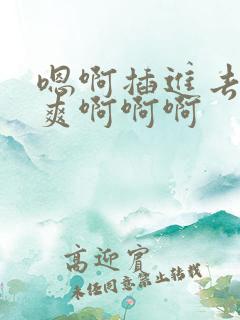 嗯啊插进去
爽啊啊啊
高迎宾
未经同意禁止转载